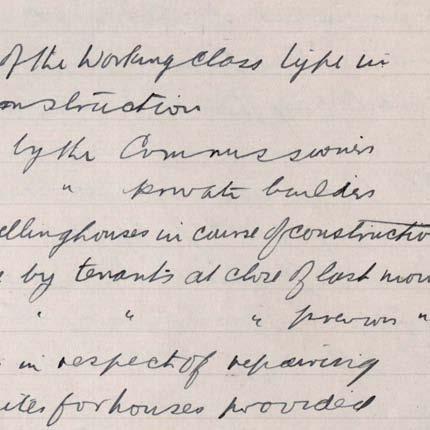 of the Working class type in
nstruction
by the Commissioners
" private builders
ellinghouses in course of constructio
e by tenants at close of last mon
" " " previous "
in respect of repairing
ites for houses provided